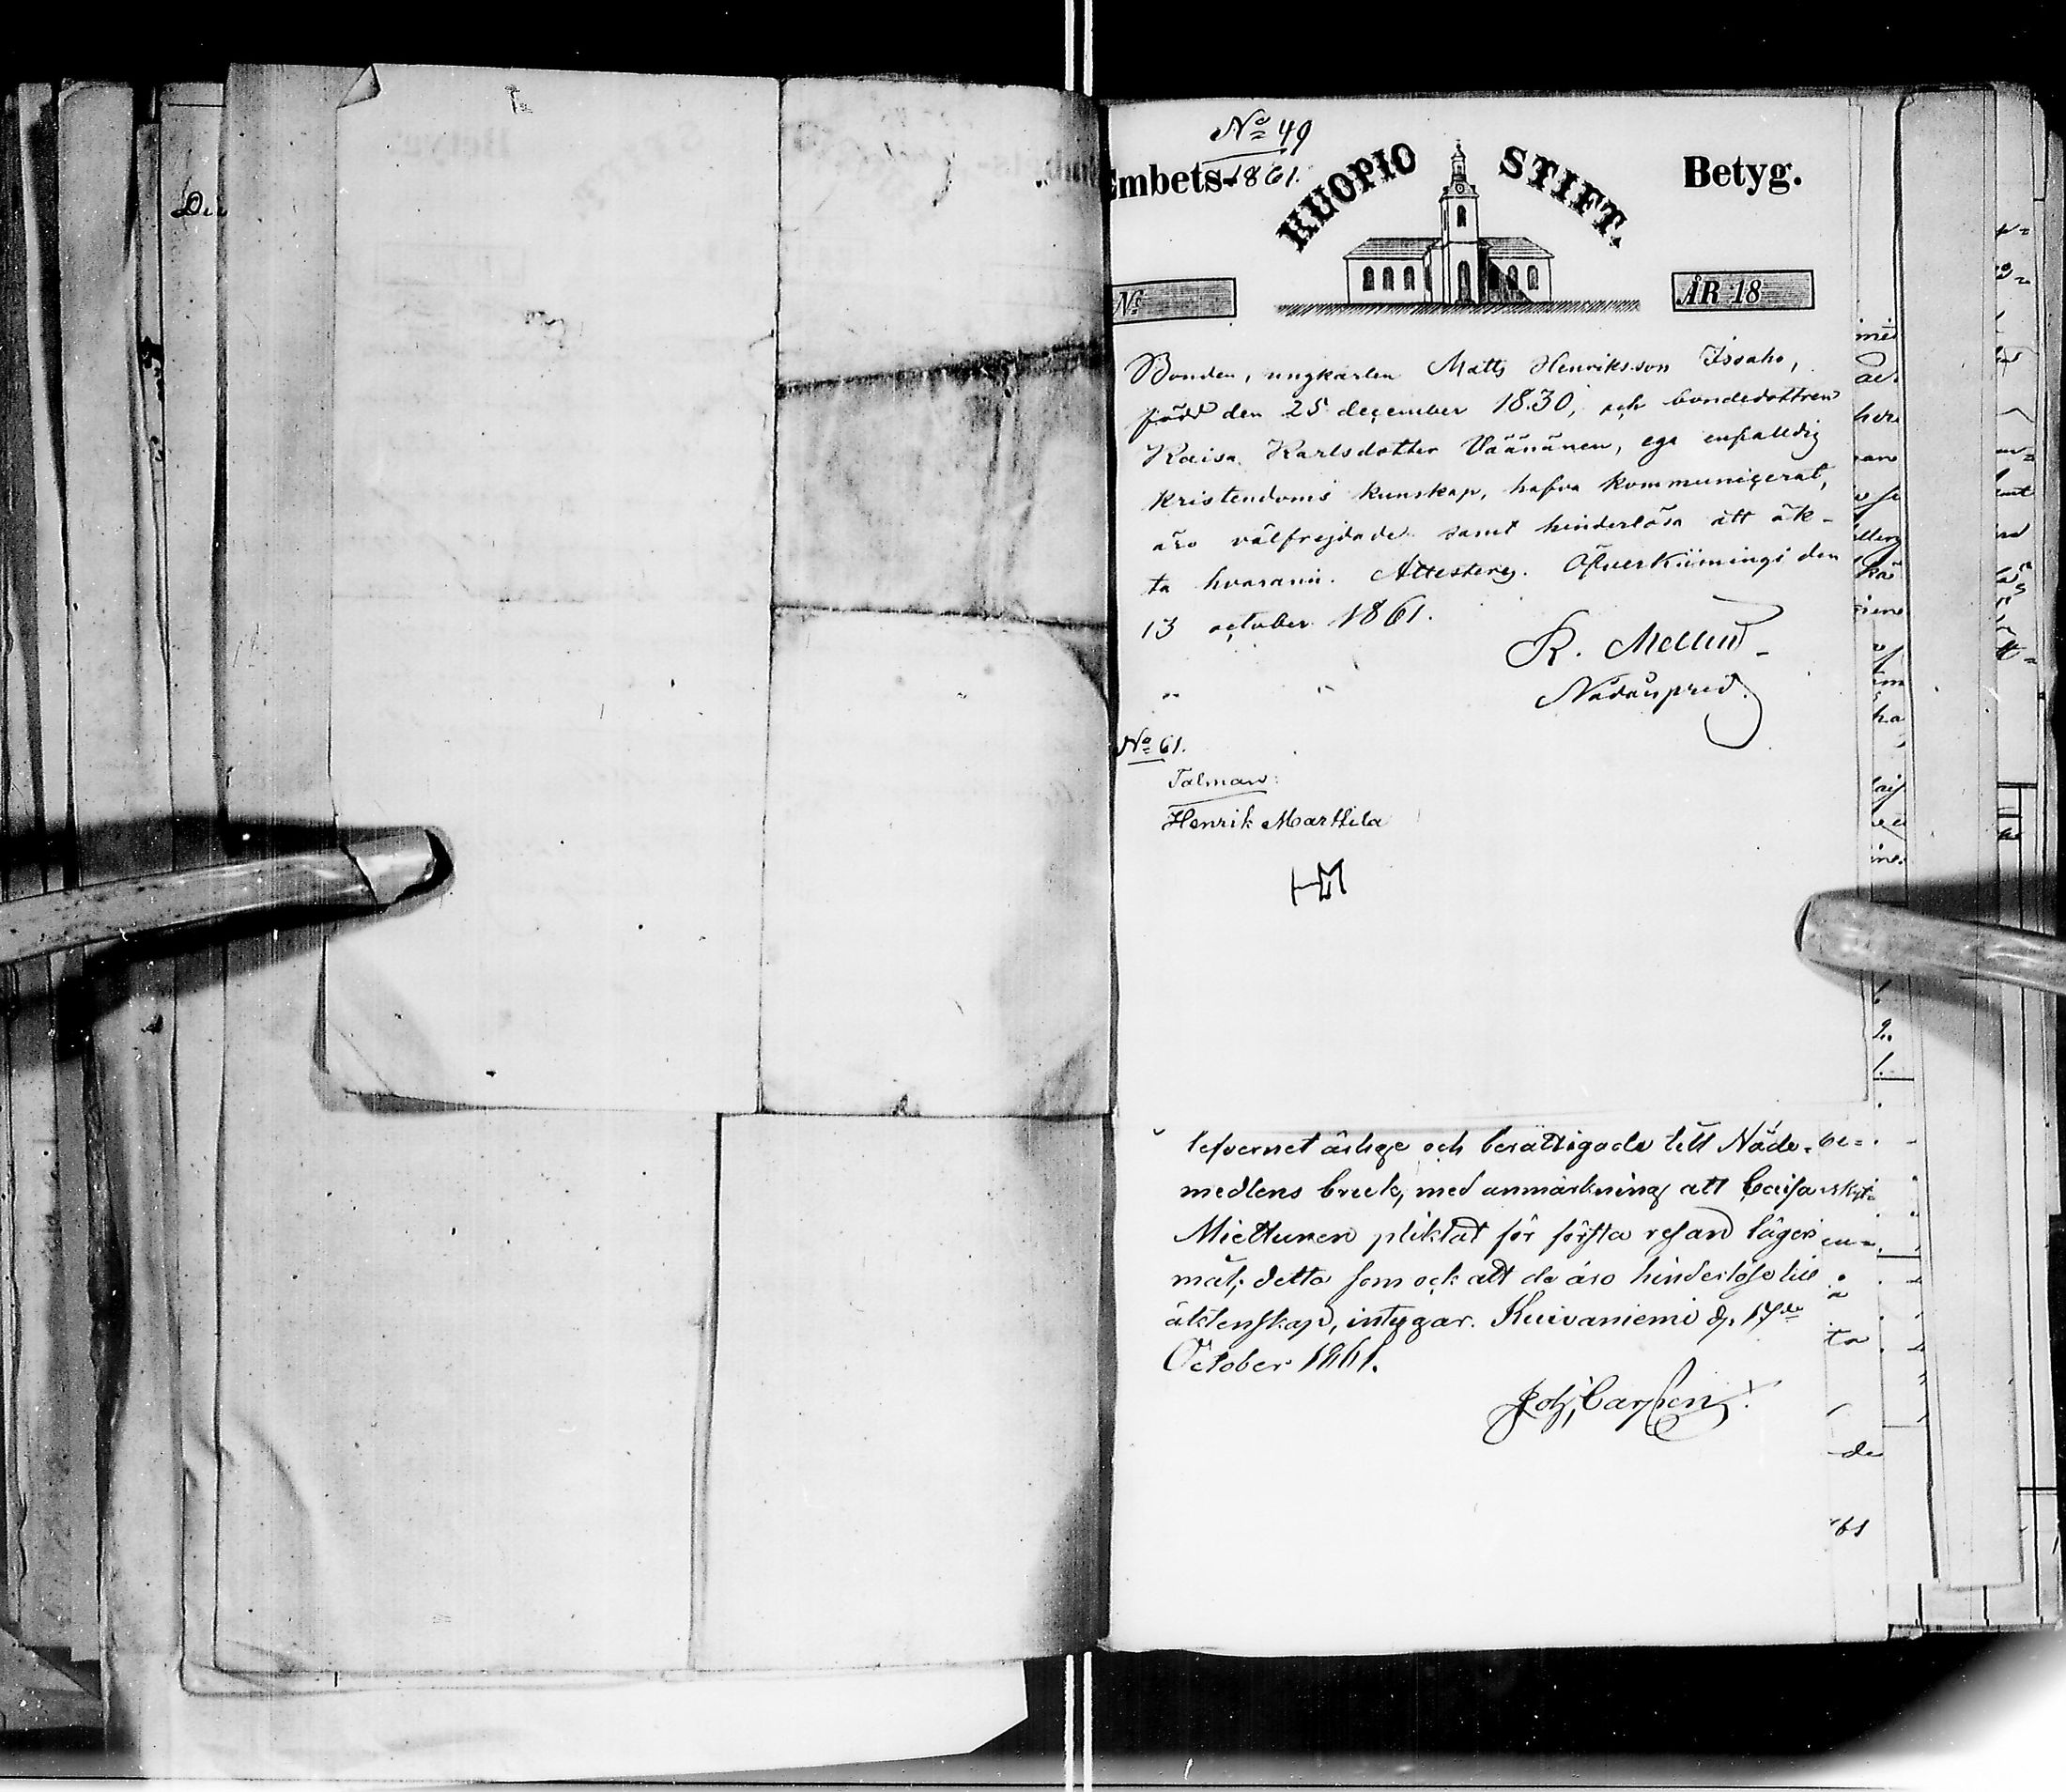 No 49
1861.
Embets-
KUOPIO STIFT.
Betyg.
No
ÅR 18
Bonden, ungkarlen Matts Henriksson Issaho,
född den 25 december 1830, och bondedottren
Kaisa Karlsdotter Väänänen, ega enfalldig
kristendoms kunskap, hafva kommunicerat,
äro välfrejdade samt hinderlösa att äk-
ta hvarann. Attesterar. Öfverkiimingi den
13 october 1861.
K. Mellin
No 61.
Talman:
Henrik Marttila
HM
lefvernet ärlige och berättigade till Nåde-
medlens bruk, med anmärkning att Caisa
Miettunen pliktat för första resan lägers
mål; detta som ock att de äro hinderlöse till
äktenskap, intygar. Kuivaniemi d. 17de
October 1861.
Joh. Carlsen